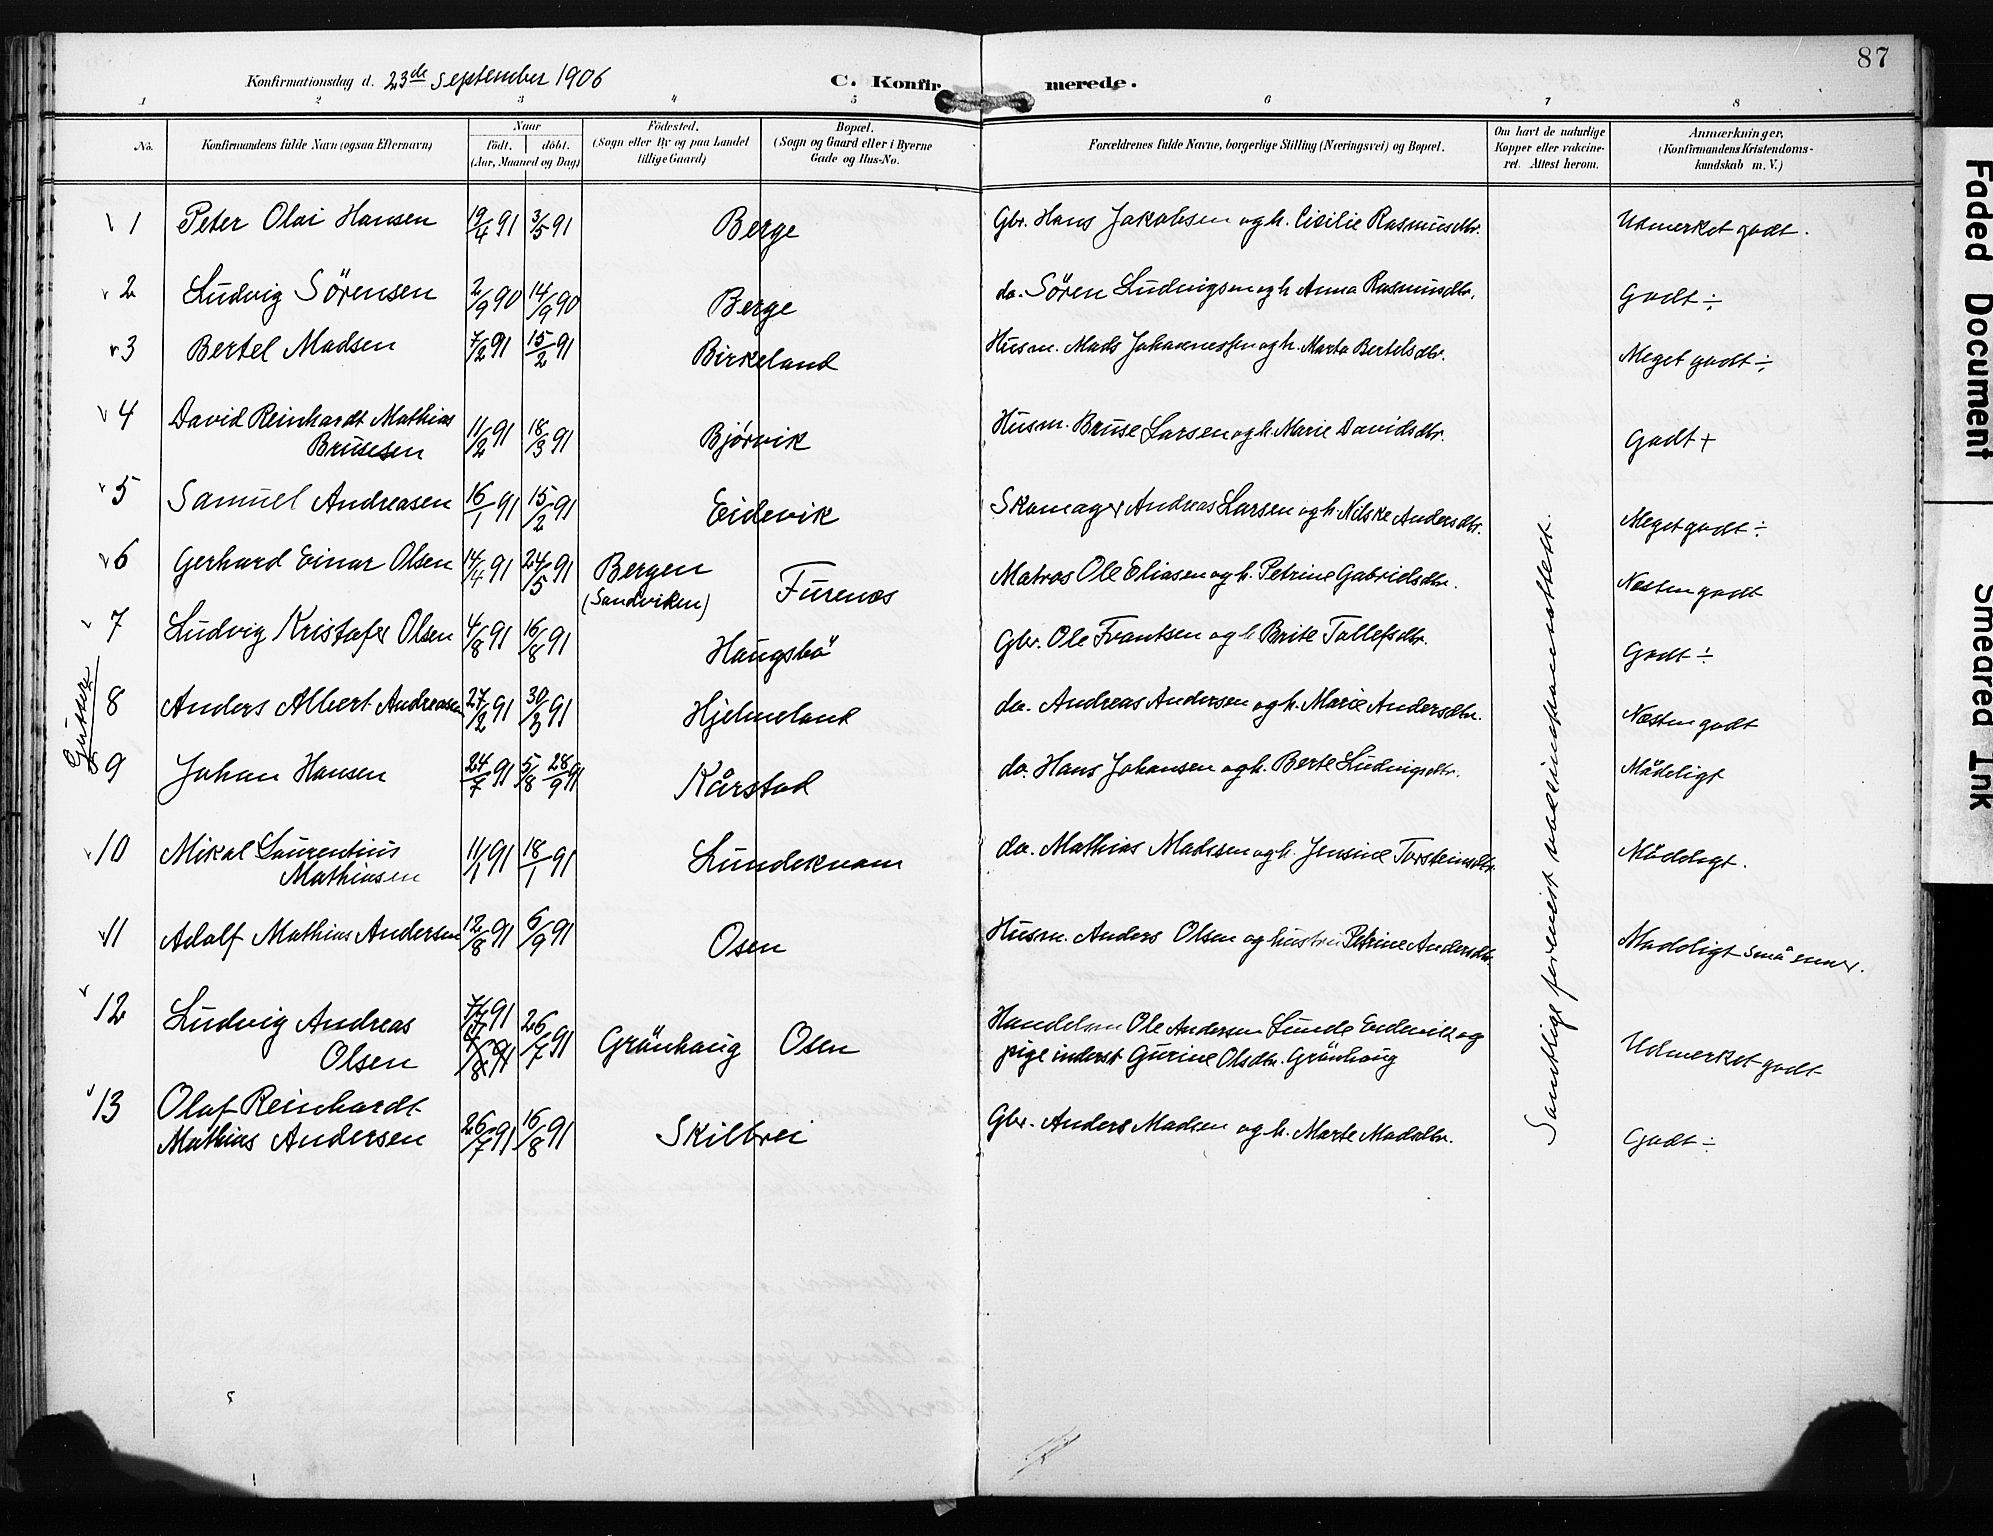 87
Konfirmationsdag d. 23de September 1906
C. Konfirmerede.
1 2 3 4 5 6 7 8
No.
Konfirmandens fulde Navn (ogsaa Efternavn)
Naar
født. døbt.
(Aar, Maaned og Dag)
Fødested.
(Sogn eller By og paa Landet
tillige Gaard)
Bopæl.
(Sogn og Gaard eller i Byerne
Gade og Hus-No.
Forældrenes fulde Navne, borgerlige Stilling (Næringsvei) og Bopæl.
Om havt de naturlige
Kopper eller vakcine-
ret. Attest herom.
Anmærkninger,
(Konfirmandens Kristendoms-
kundskab m. V.)
1 Peter Olai Hansen 19/4 91 3/5 91 Berge Gbr. Hans Jakobsen og h. Cicilie Rasmusdtr. Udmerket godt.
2 Ludvig Sörensen 2/9 90 14/9 90 Berge do. Sören Ludvigsen og h Anna Rasmusdtr. Godt ÷
3 Bertel Madsen 7/2 91 15/2 91 Birkeland Husm. Mads Johannessen og h. Marta Bertelsdtr. Meget godt ÷
4 David Reinhardt Mathias
Brusesen 11/2 91 18/3 91 Bjørvik Husm. Bruse Larsen og h. Marie Davidsdtr. Godt +
5 Samuel Andreasen 16/1 91 15/2 91 Eidevik Skomager Andreas Larsen og h. Nilske Andersdtr. Meget godt ÷
6 Gerhard Einar Olsen 14/4 91 24/5 91 Bergen
(Sandviken) Furenes Matros Ole Eliasen og h. Petrine Gabrielsdtr. Næsten godt
7 Ludvig Kristofer Olsen 4/8 91 16/8 91 Haugsbö Gbr. Ole Frantsen og h Brite Tollefsdtr. Godt ÷
Gutter
8 Anders Albert Andreasen 27/2 91 30/3 91 Hjelmeland do. Andreas Andersen og h. Marie Andersdtr. Næsten godt
9 Johan Hansen 24/7 91 5/8 28/9 91 Kårstad do. Hans Johansen og h. Berte Ludvigsdtr. Mådeligt
10 Mikal Laurentius
Mathiasen 11/1 91 18/1 91 Lundekvam do. Mathias Madssen og h. Jensine Torsteinsdtr. Mådeligt.
11 Adolf Mathias Andersen 12/8 91 6/9 91 Osen Husm. Anders Olsen og hustru Petrine Andersdtr. Madeligt små evner.
12 Ludvig Andreas
Olsen 91 26/7 91 Grönhaug Osen Handelsm Ole Andersen Lunde Eidevik og
pige inderst Gurine Olsdtr. Grönhaug Udmerket godt
13 Olaf Reinhardt
Mathias Andersen 26/7 91 16/8 91 Skilbrei Gbr. Anders Madsen og h. Marte Madsdtr. Godt ÷
Samtlige forevist vaccinationsattest.
Faded Document
Smeared Ink